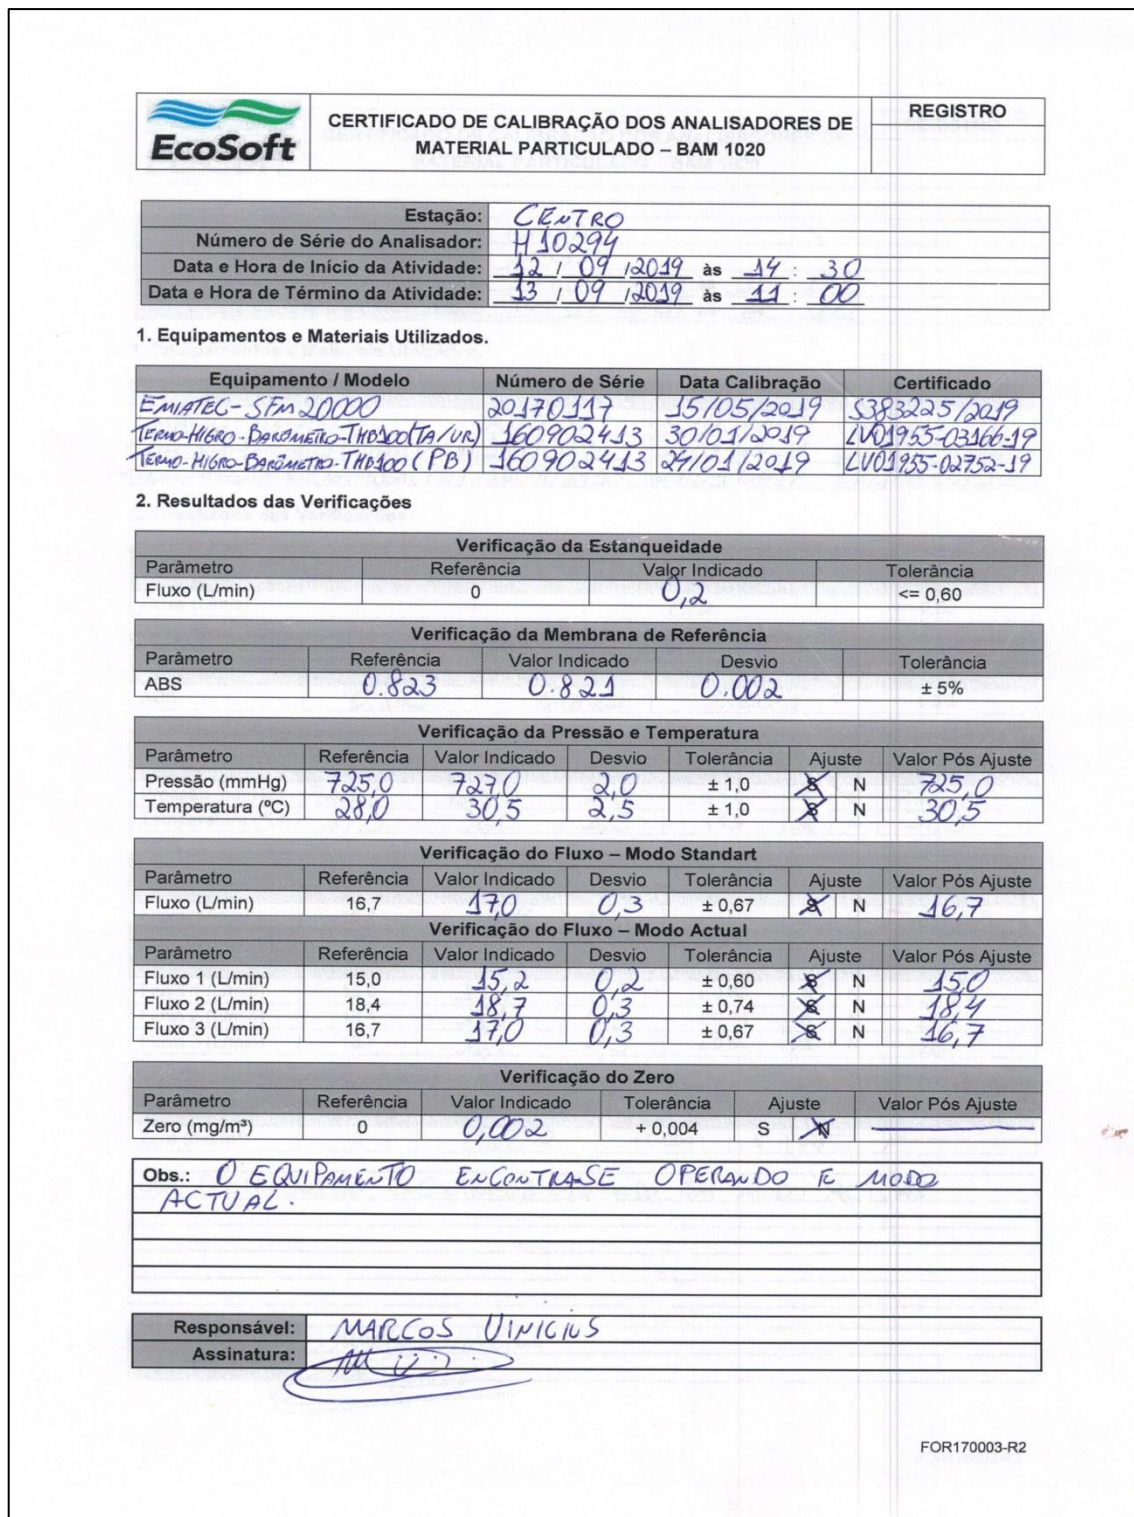 EcoSoft
CERTIFICADO DE CALIBRAÇÃO DOS ANALISADORES DE
MATERIAL PARTICULADO – BAM 1020
REGISTRO
Estação: CENTRO
Número de Série do Analisador: H10294
Data e Hora de Início da Atividade: 12 / 09 / 2019 às 14 : 30
Data e Hora de Término da Atividade: 13 / 09 / 2019 às 11 : 00
1. Equipamentos e Materiais Utilizados.
Equipamento / Modelo Número de Série Data Calibração Certificado
EMIATEC - SFM 20000 20170117 15/05/2019 S383225/2019
TERMO-HIGRO-BARÔMETRO-THB100(TA/UR) 160902413 30/01/2019 LV01955-03166-19
TERMO-HIGRO-BARÔMETRO-THB100 (PB) 160902413 29/01/2019 LV01955-02752-19
2. Resultados das Verificações
Verificação da Estanqueidade
Parâmetro Referência Valor Indicado Tolerância
Fluxo (L/min) 0 0,2 <= 0,60
Verificação da Membrana de Referência
Parâmetro Referência Valor Indicado Desvio Tolerância
ABS 0.823 0.821 0.002 ± 5%
Verificação da Pressão e Temperatura
Parâmetro Referência Valor Indicado Desvio Tolerância Ajuste Valor Pós Ajuste
Pressão (mmHg) 725,0 727,0 2,0 ± 1,0 S N 725,0
Temperatura (ºC) 28,0 30,5 2,5 ± 1,0 S N 30,5
Verificação do Fluxo – Modo Standart
Parâmetro Referência Valor Indicado Desvio Tolerância Ajuste Valor Pós Ajuste
Fluxo (L/min) 16,7 17,0 0,3 ± 0,67 S N 16,7
Verificação do Fluxo – Modo Actual
Parâmetro Referência Valor Indicado Desvio Tolerância Ajuste Valor Pós Ajuste
Fluxo 1 (L/min) 15,0 15,2 0,2 ± 0,60 S N 15,0
Fluxo 2 (L/min) 18,4 18,7 0,3 ± 0,74 S N 18,4
Fluxo 3 (L/min) 16,7 17,0 0,3 ± 0,67 S N 16,7
Verificação do Zero
Parâmetro Referência Valor Indicado Tolerância Ajuste Valor Pós Ajuste
Zero (mg/m³) 0 0,002 + 0,004 S N
Obs.: O EQUIPAMENTO ENCONTRA-SE OPERANDO E MODO
ACTUAL.
Responsável: MARCOS VINICIUS
Assinatura:
FOR170003-R2